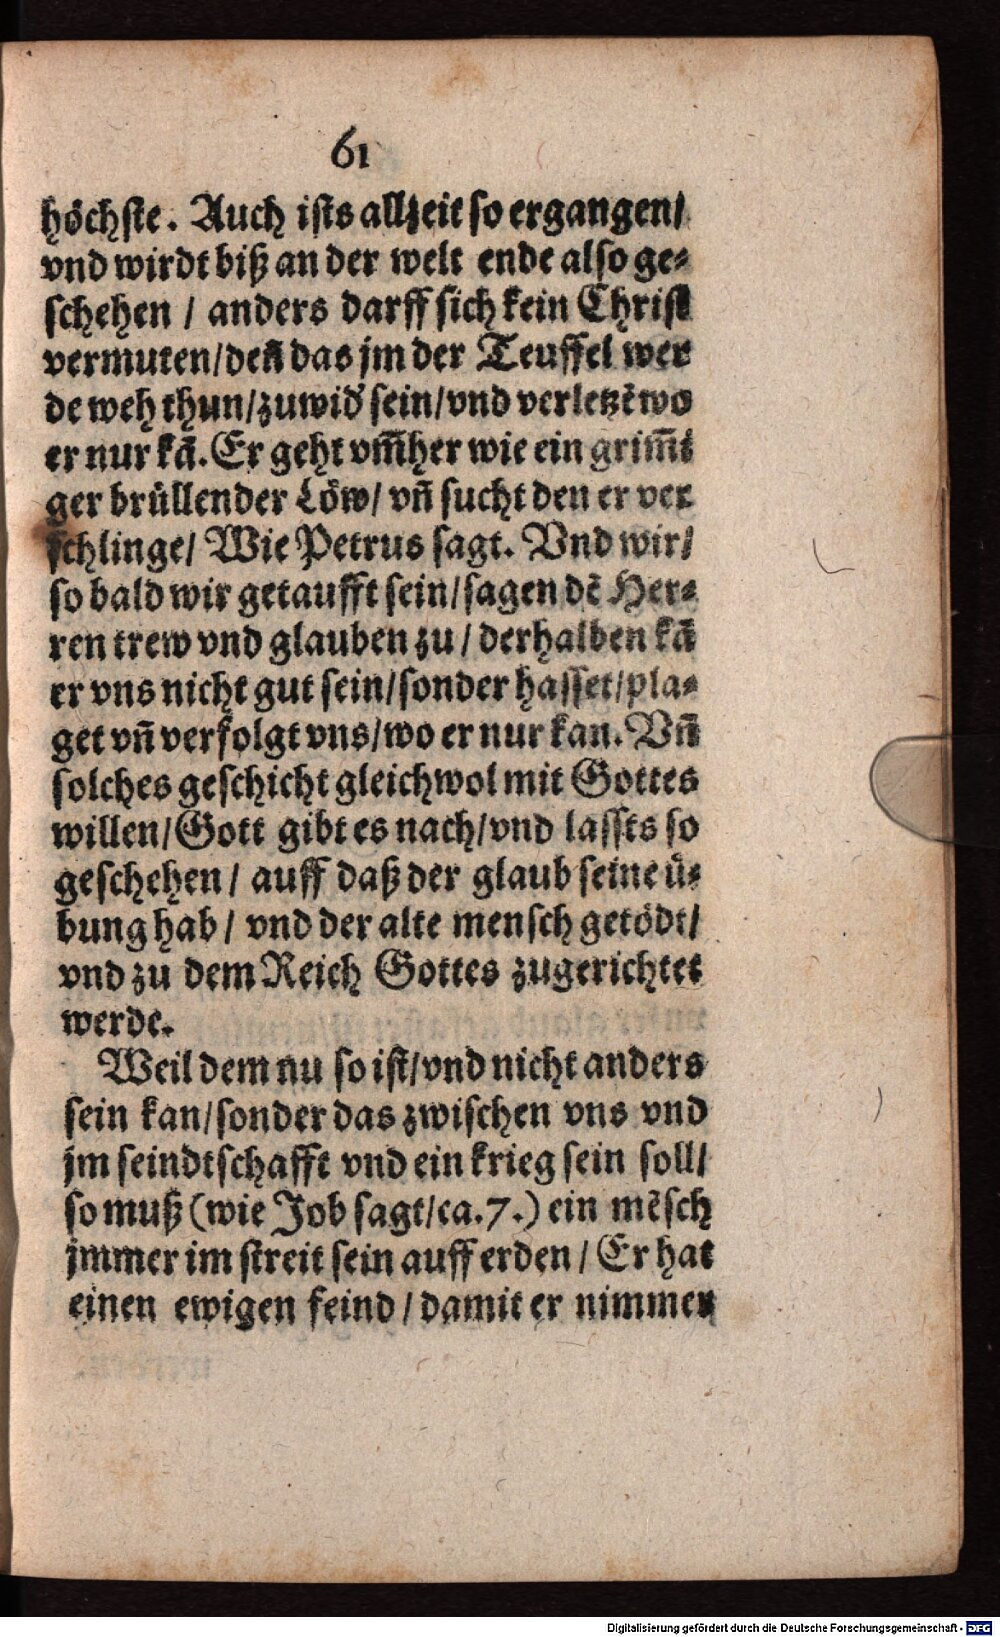 61
höchste. Auch ists allzeit so ergangen/
vnd wirdt biß an der welt ende also ge-
schehen / anders darff sich kein Christ
vermuten/den̄ das jm der Teuffel wer
de weh thun/zuwid' sein/vnd verletzē wo
er nur kā. Er geht vm̄her wie ein grim̄i
ger brüllender Löw/ vn̄ sucht den er ver
schlinge/ Wie Petrus sagt. Vnd wir/
so bald wir getaufft sein/sagen dē Her-
ren trew vnd glauben zu / derhalben kā
er vns nicht gut sein/sonder hasset/pla-
get vn̄ verfolgt vns/wo er nur kan. Vn̄
solches geschicht gleichwol mit Gottes
willen/Gott gibt es nach/vnd lassts so
geschehen / auff daß der glaub seine ü-
bung hab / vnd der alte mensch getödt/
vnd zu dem Reich Gottes zugerichtet
werde.
Weil dem nu so ist/vnd nicht anders
sein kan/sonder das zwischen vns vnd
jm feindtschafft vnd ein krieg sein soll/
so muß (wie Job sagt/ca.7.) ein mēsch
jmmer im streit sein auff erden / Er hat
einen ewigen feind / damit er nimmer
Digitalisierung gefördert durch die Deutsche Forschungsgemeinschaft - DFG